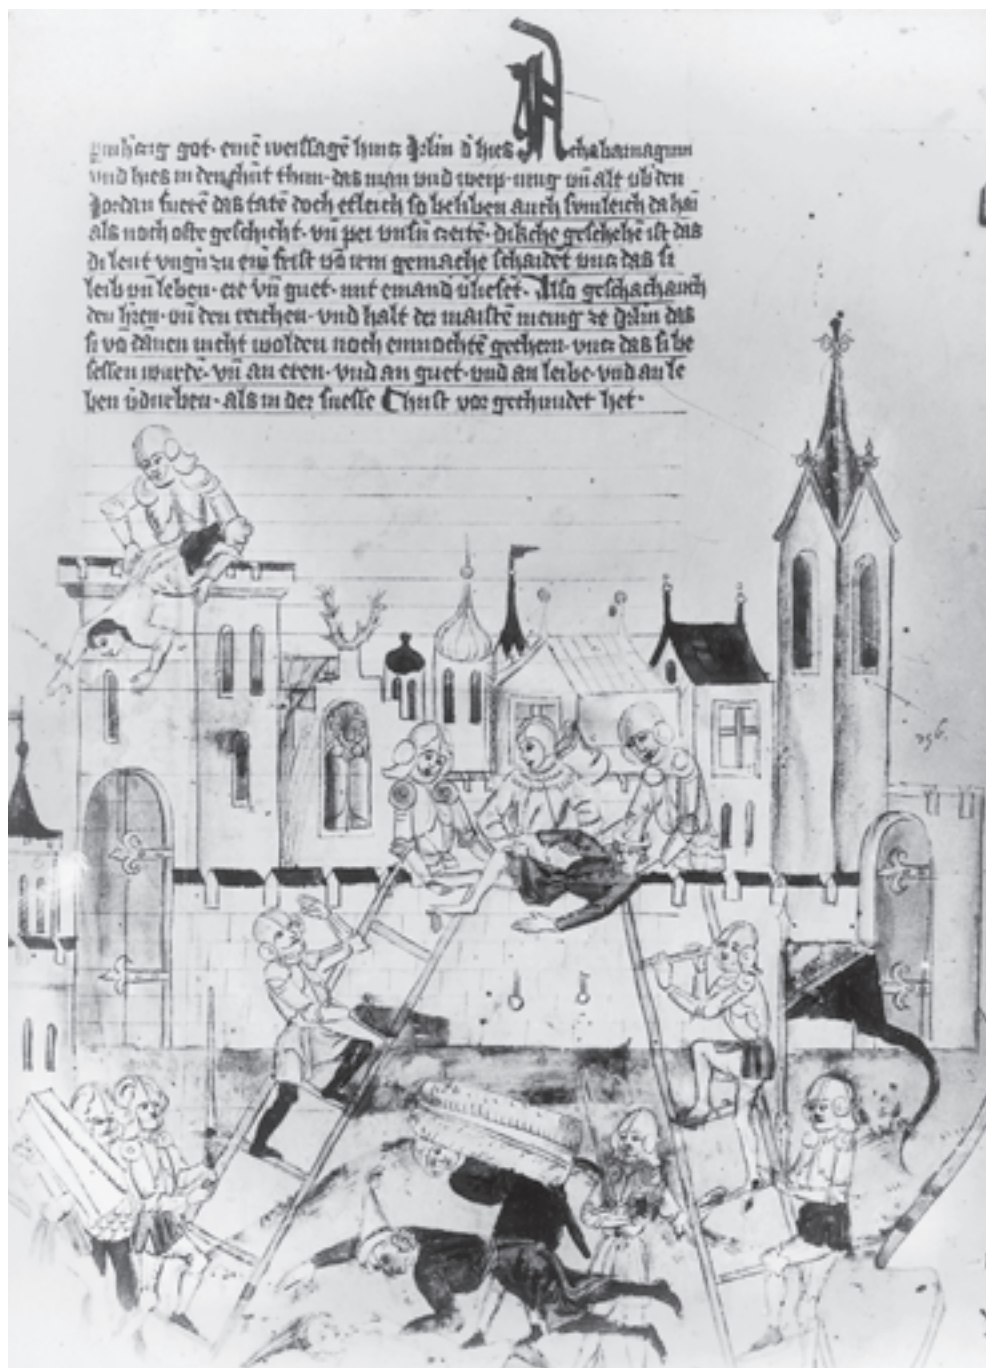 got· emē weissagē hincz d hies
vnd hies in den chunt thun· das man vnd weip· iung vn̄ alt vb den
Jordan fuerē das tatē doch etleich so beliben auch sumleich da haī
als noch ofte geschicht· vn̄ pei vnsn czeitē· dikche geschehē ist das
di leut vngn zu frist vō irem gemache schaidēt vncz das si
leib vn̄ leben· ere vn̄ guet· mit emand vliesēt· Also geschach auch
den hren· vn̄ den reichen· vnd halt der maistē menig ze das
si vō dānen nicht wolden noch enmochtē gechern· vncz das si be
sessen wurdē· vn̄ an eren· vnd an guet· vnd an leibe· vnd an le
ben als in der suesse Christ vor gechundet het·
296.